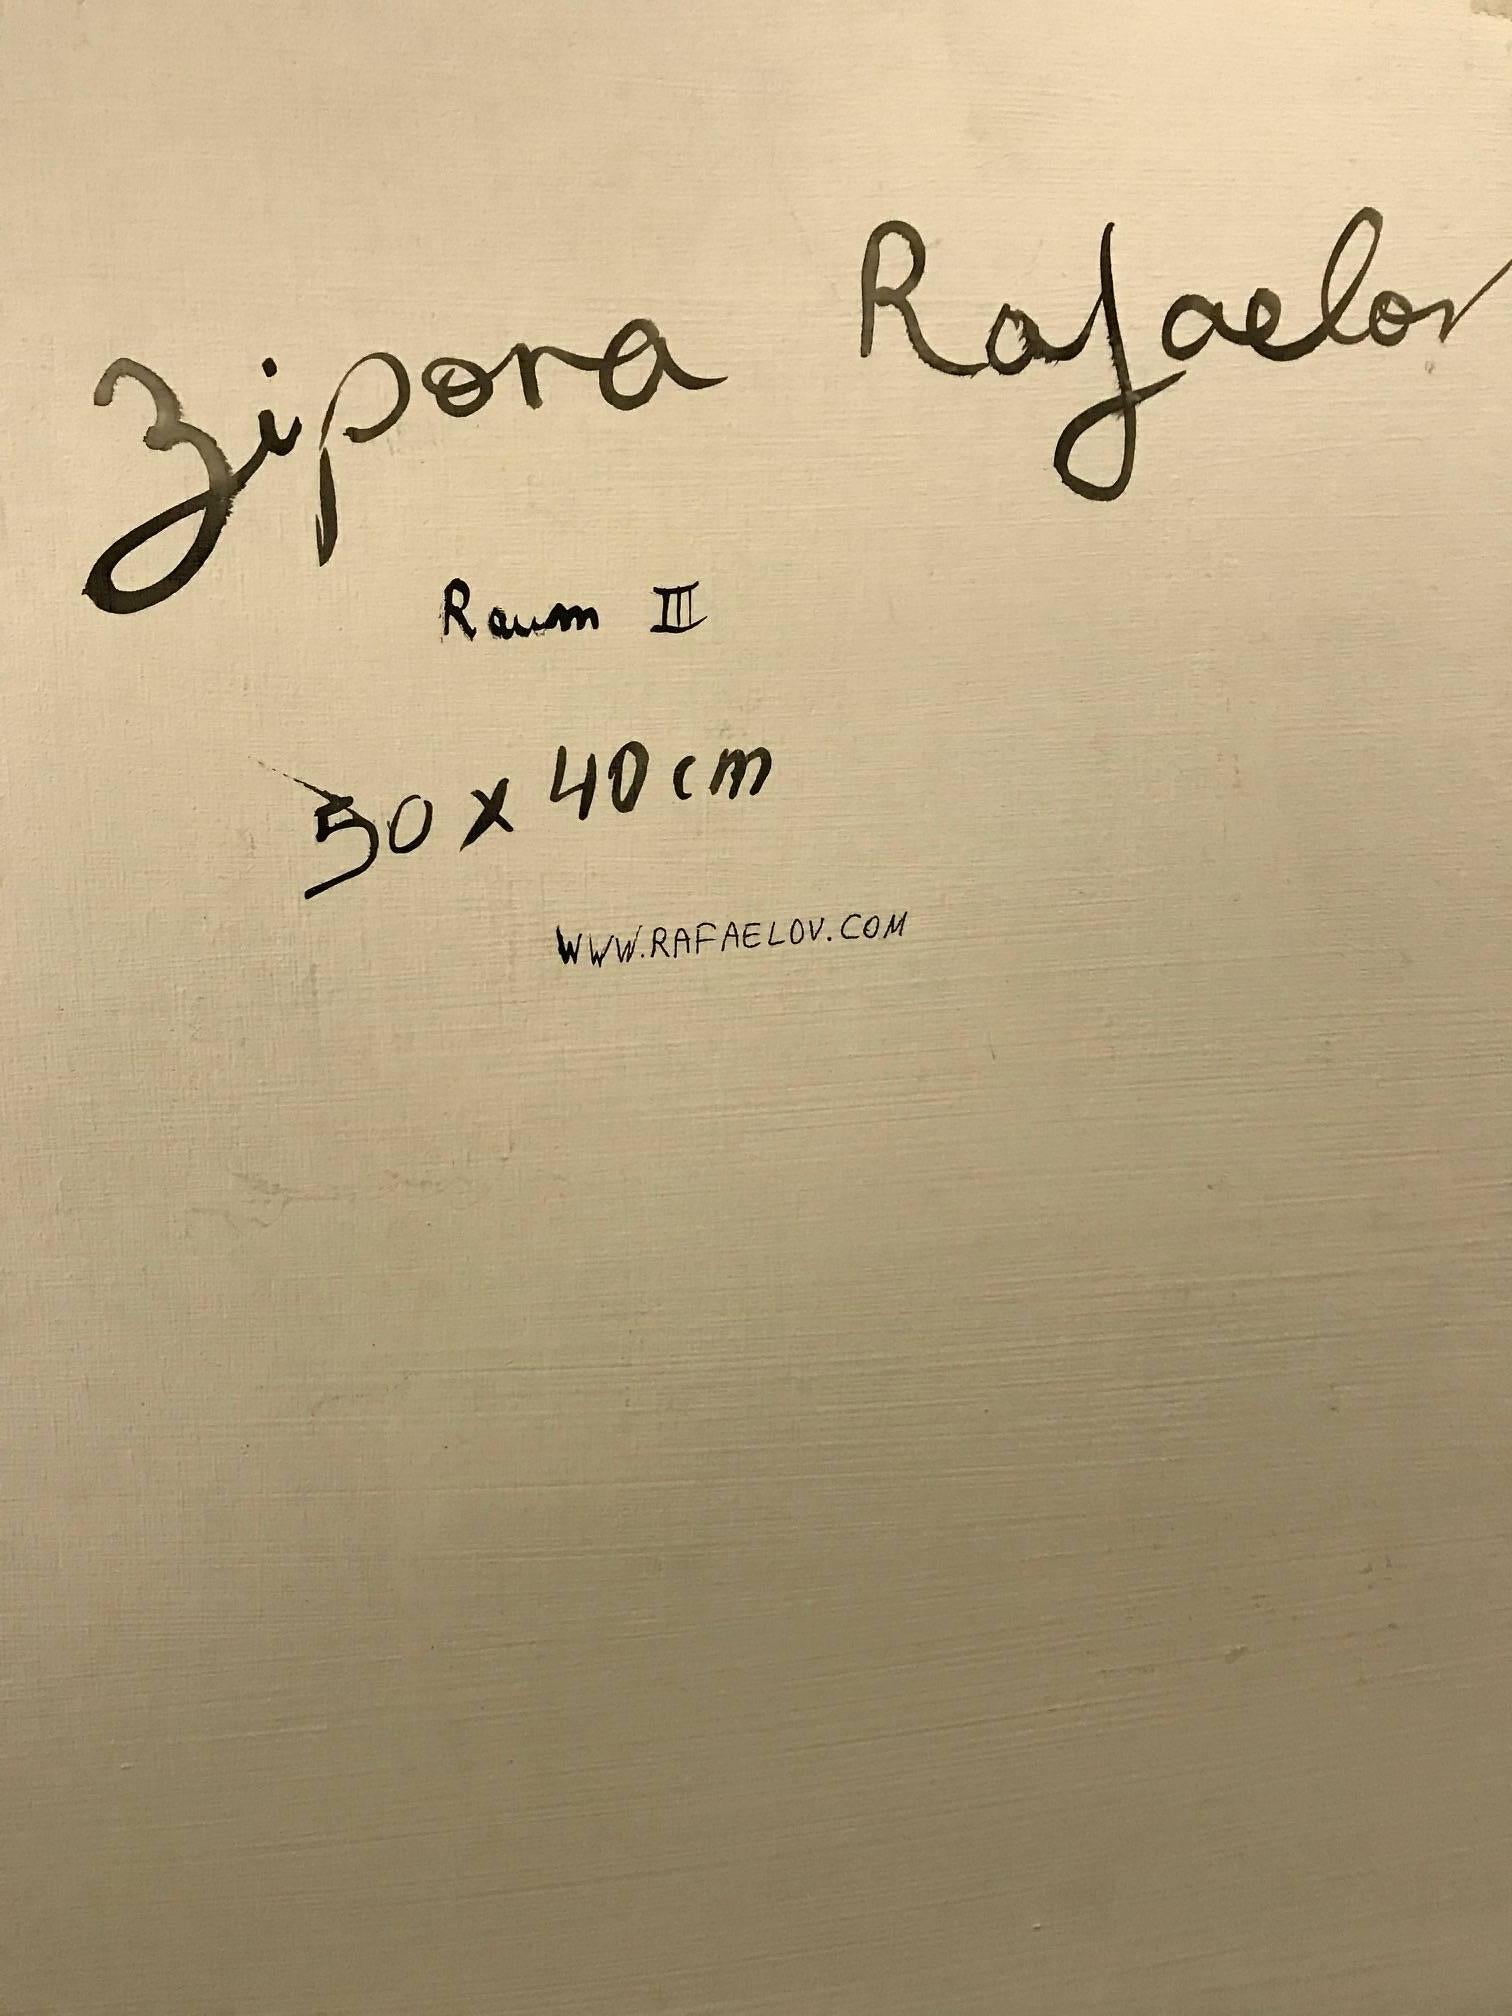 Zipora Rafaelov
Raum III
50 x 40 cm
WWW.RAFAELOV.COM